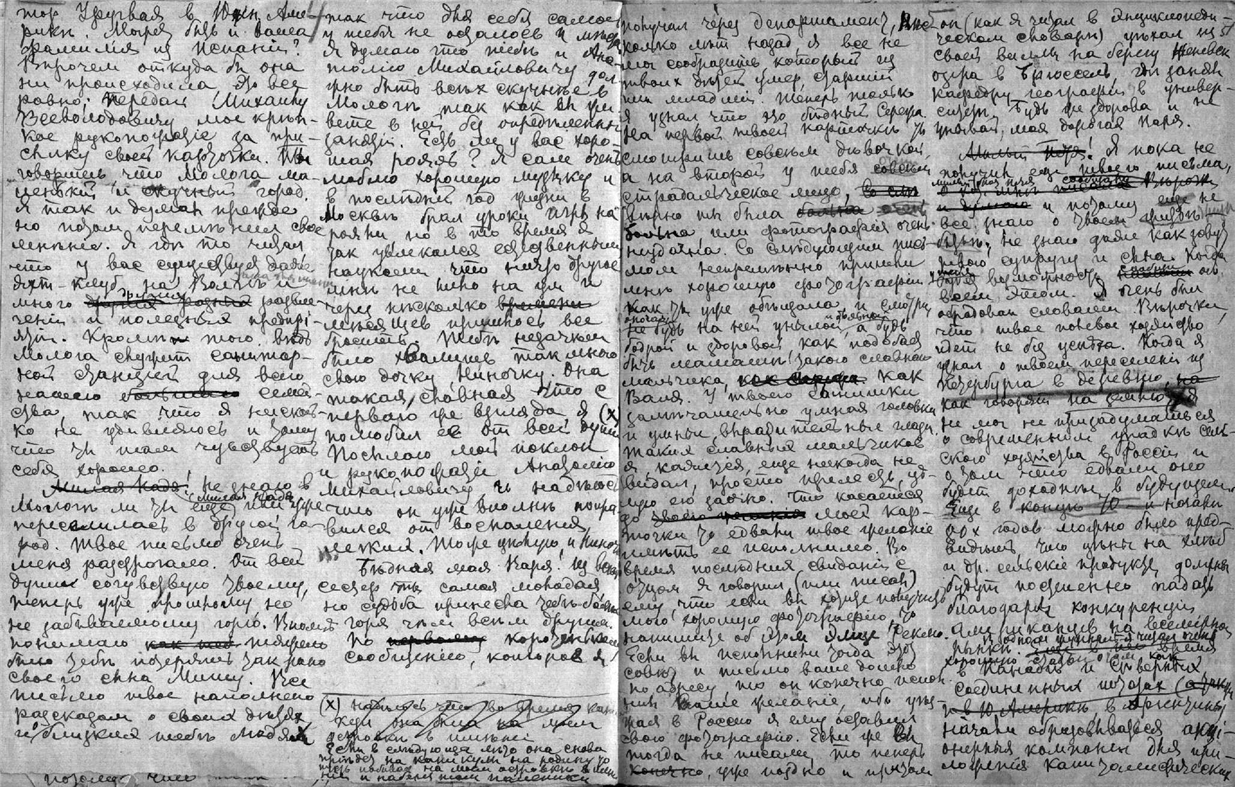 тор Уругвая в Южн. Аме-
рики. Может быть и ваша
фамилия из Испании?
Впрочем откуда бы она
ни происходила это все
равно, передай Михаилу
Всеволодовичу мое креп-
кое рукопожатие за при-
сылку своей карточки. Ты
говоришь что Молога ма-
ленький и скучный город.
Я так и думал прежде
но потом переменил свое
мнение. Я где то читал
что у вас существует даже
яхт-клуб на Волге и
много развле-
чений и полезных предпри-
ятий. Кроме того ведь
Молога служит санитар-
ной станцией для всего
нашего семей-
ства так что я несколь-
ко не удивляюсь и тому
что ты там чувствуешь
себя хорошо.
Милая Надя, не знаю в
Мологе ли ты еще или уже
переселилась в другой го-
род. Твое письмо очень
меня растрогало. От всей
души сочувствую твоему,
теперь уже прошлому но
не забываемому горю. Вполне
понимаю тяжело
было тебе потерять так рано
своего сына Мишу. Все
письмо твое наполнено
рассказом о своих детях
и близких тебе людях
так что для себя самой
у тебя не осталось и места
Я думаю что тебе и Ана-
толию Михайловичу дол-
жно быть всех скучнее в
Мологе так как вы жи-
вете в ней без определенных
занятий. Есть ли у вас хоро-
шая рояль? Я сам очень
люблю хорошую музыку и
в последний год жизни в
Москве брал уроки игры на
рояли но в то время я
так увлекался естественными
науками что ничто другое
мне не шло на ум и
через несколько
месяцев пришлось все
бросить. Тебе незачем
было хвалить так много
свою дочку Ниночку. Она
такая славная что с
первого же взгляда я (х)
полюбил ее от всей души
Посылаю мой поклон
и рукопожатие Анатолию
Михайловичу и надеюсь
что он уже вполне попра-
вился от воспаления
легких. Тоже целую, и Ниночку
Бедная моя Варя! Из всех
сестер ты самая молодая
но судьба принесла тебе больше
горя чем всем другим.
По коротеньким
сообщениям, которое я
(х)
Если в следующее лето она снова
приедет на каникулы на родину то
получал через департамент,
колько лет назад, я все не
мог сообразить который из
твоих детей умер, старший
или младший. Теперь только
я узнал что это бедный Сережа
На первой твоей карточке ты
смотришь совсем девочкой,
а на второй у тебя совсем
страдальческое лицо,
верно ты была
больна или фотография очень
неудачна. Со следующим пись-
мом непременно пришли
мне хорошую фотографию
как ты уже обещала и смотри
не будь на ней унылой, а будь
бодрой и здоровой как подобает
быть мамаше такого славного
мальчика, как
Валя. У твоего сынишки
замечательно умная головка
и умные выразительные глаза.
Таких славных мальчиков
я, кажется, еще никогда не
видал, просто прелесть, це-
лую его заочно. Что касается
до моей кар-
точки то едва ли твое желание
иметь ее исполнимо. Во
время последнего свидания с
отцом я говорил (или писал)
ему что если вы хотите получить
мою хорошую фотографию то
напишите об этом Элизе Реклю.
Если вы исполнили тогда этот
совет и письмо ваше дошло
по адресу, то он конечно испол-
нил ваше желание, ибо уез-
жая в Россию я ему оставил
свою фотографию. Если же вы
тогда не писали, то теперь
конечно, уже поздно и притом
он (как я читал в Энциклопеди-
ческом словаре) уехал из
своей виллы на берегу Женевск.
озера в Брюссель, где занял
кафедру географии в универ-
ситете. Будь же здорова и не
унывай, моя дорогая Варя.
Я пока не
получил еще твоего письма,
и потому еще не
все знаю о твоем житье
бытье, не знаю даже как зовут
твоего супруга и сына. Когда
всем этом. Я очень был
обрадован словами Верочки,
что твое полевое хозяйство
идет не без успеха. Когда я
узнал о твоем переселении из
Петербурга в деревню, на
как говорят на землю, я
не мог не призадуматься
о современном упадке сель-
ского хозяйства в России и
о том что едва ли оно
будет доходным в будущем.
Еще в конце 70 и начале
80х годов можно было пред-
видеть, что цены на хлеб
и др. сельские продукты должны
будут постепенно падать
благодаря конкуренции
Американцев на всемирном
рынке.
в Канаде и Северных
соединенных штатах (а также
и в Ю Америке в Аргентине)
начали образовываться акци-
онерные компании для при-
ложения капиталистических